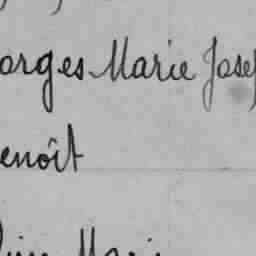 orges Marie Josep
enoît
Marie